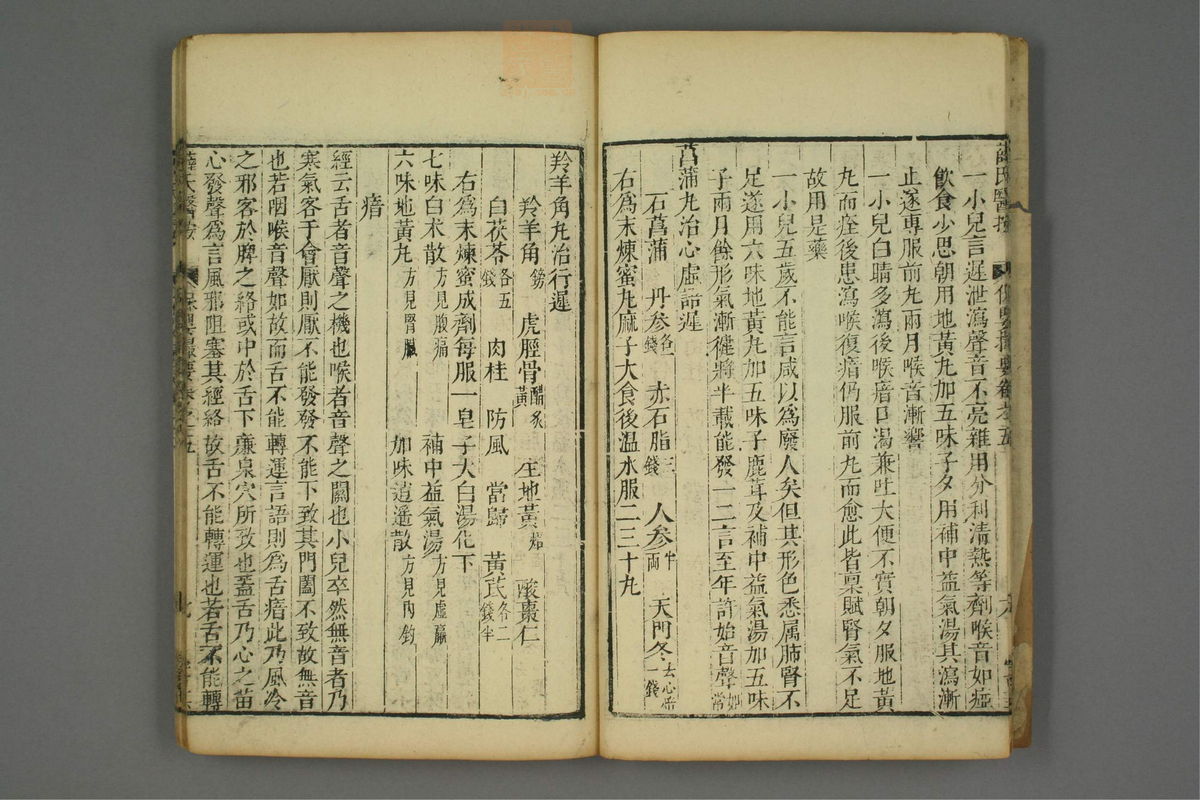 薛氏醫按
保嬰撮要卷之五
一小兒言遲泄瀉聲音不亮雜用分利清熱等劑喉音如瘂
飲食少思朝用地黃丸加五味子夕用補中益氣湯其瀉漸
止遂專服前丸兩月喉音漸響
一小兒白睛多瀉後喉瘖口渴兼吐大便不實朝夕服地黃
丸而痊後患瀉喉復瘖仍服前丸而愈此皆稟賦腎氣不足
故用是藥
一小兒五歲不能言咸以為廢人矣但其形色悉属肺腎不
足遂用六味地黃丸加五味子鹿茸及補中益氣湯加五味
子兩月餘形氣漸健將半載能發一二言至年許始音聲如常
菖蒲丸治心虛語遲
石菖蒲 丹參各二錢 赤石脂三錢 人參半両 天門冬去心焙一錢
右為末煉蜜丸麻子大食後温水服二三十丸
羚羊角丸治行遲
羚羊角鎊 虎脛骨醋炙黃 生地黃焙 酸棗仁
白茯苓各五錢 肉桂 防風 當歸 黃芪各二錢半
右為末煉蜜成劑每服一皂子大白湯化下
七味白术散方見腹痛 補中益氣湯方見虛羸
六味地黃丸方見腎臟 加味逍遥散方見內釣
瘖
經云舌者音聲之機也喉者音聲之關也小兒卒然無音者乃
寒氣客于會厭則厭不能發發不能下致其門闔不致故無音
也若咽喉音聲如故而舌不能轉運言語則為舌瘖此乃風冷
之邪客於脾之絡或中於舌下廉泉穴所致也蓋舌乃心之苗
心發聲為言風邪阻塞其經絡故舌不能轉運也若舌不能轉
薛氏醫按
保嬰撮要卷之五